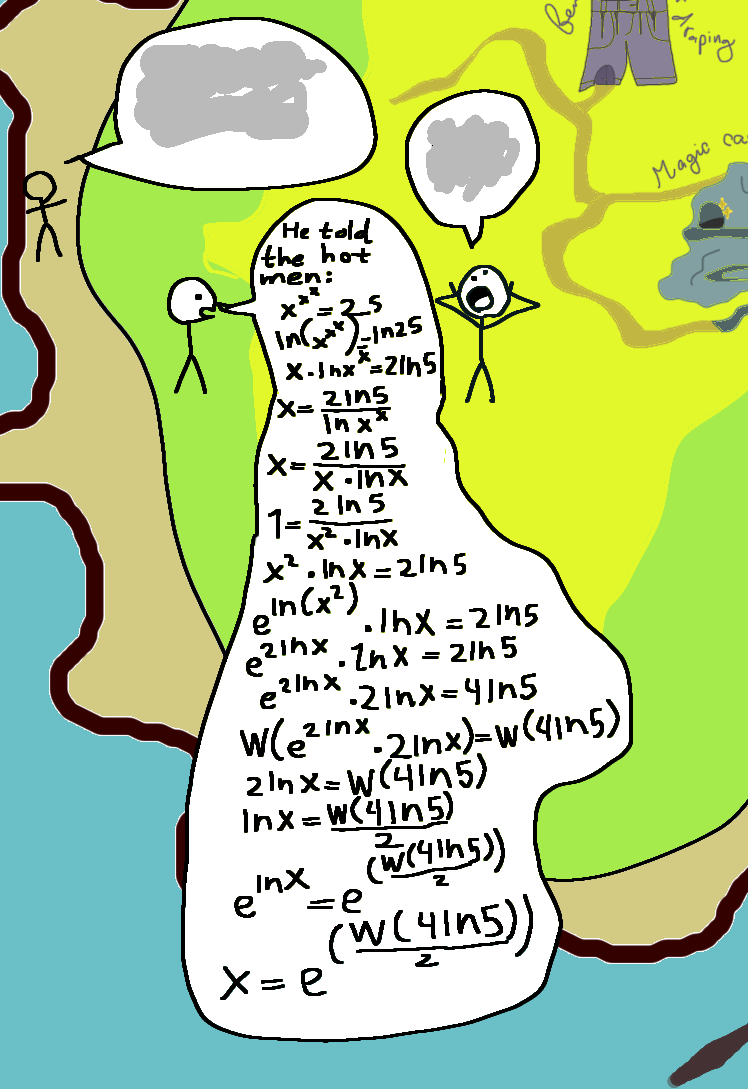 Ben
draping
Magic ca
He told
the hot
men:
x^x^x = 25
ln(x^x^x) = ln25
x·lnx^x = 2ln5
x = 2ln5 / ln x^x
x = 2ln5 / x·lnx
1 = 2ln5 / x²·lnx
x²·lnx = 2ln5
e^ln(x²)·lnx = 2ln5
e^2lnx·lnx = 2ln5
e^2lnx·2lnx = 4ln5
W(e^2lnx·2lnx) = W(4ln5)
2lnx = W(4ln5)
lnx = W(4ln5) / 2
e^lnx = e^(W(4ln5) / 2)
x = e^(W(4ln5) / 2)